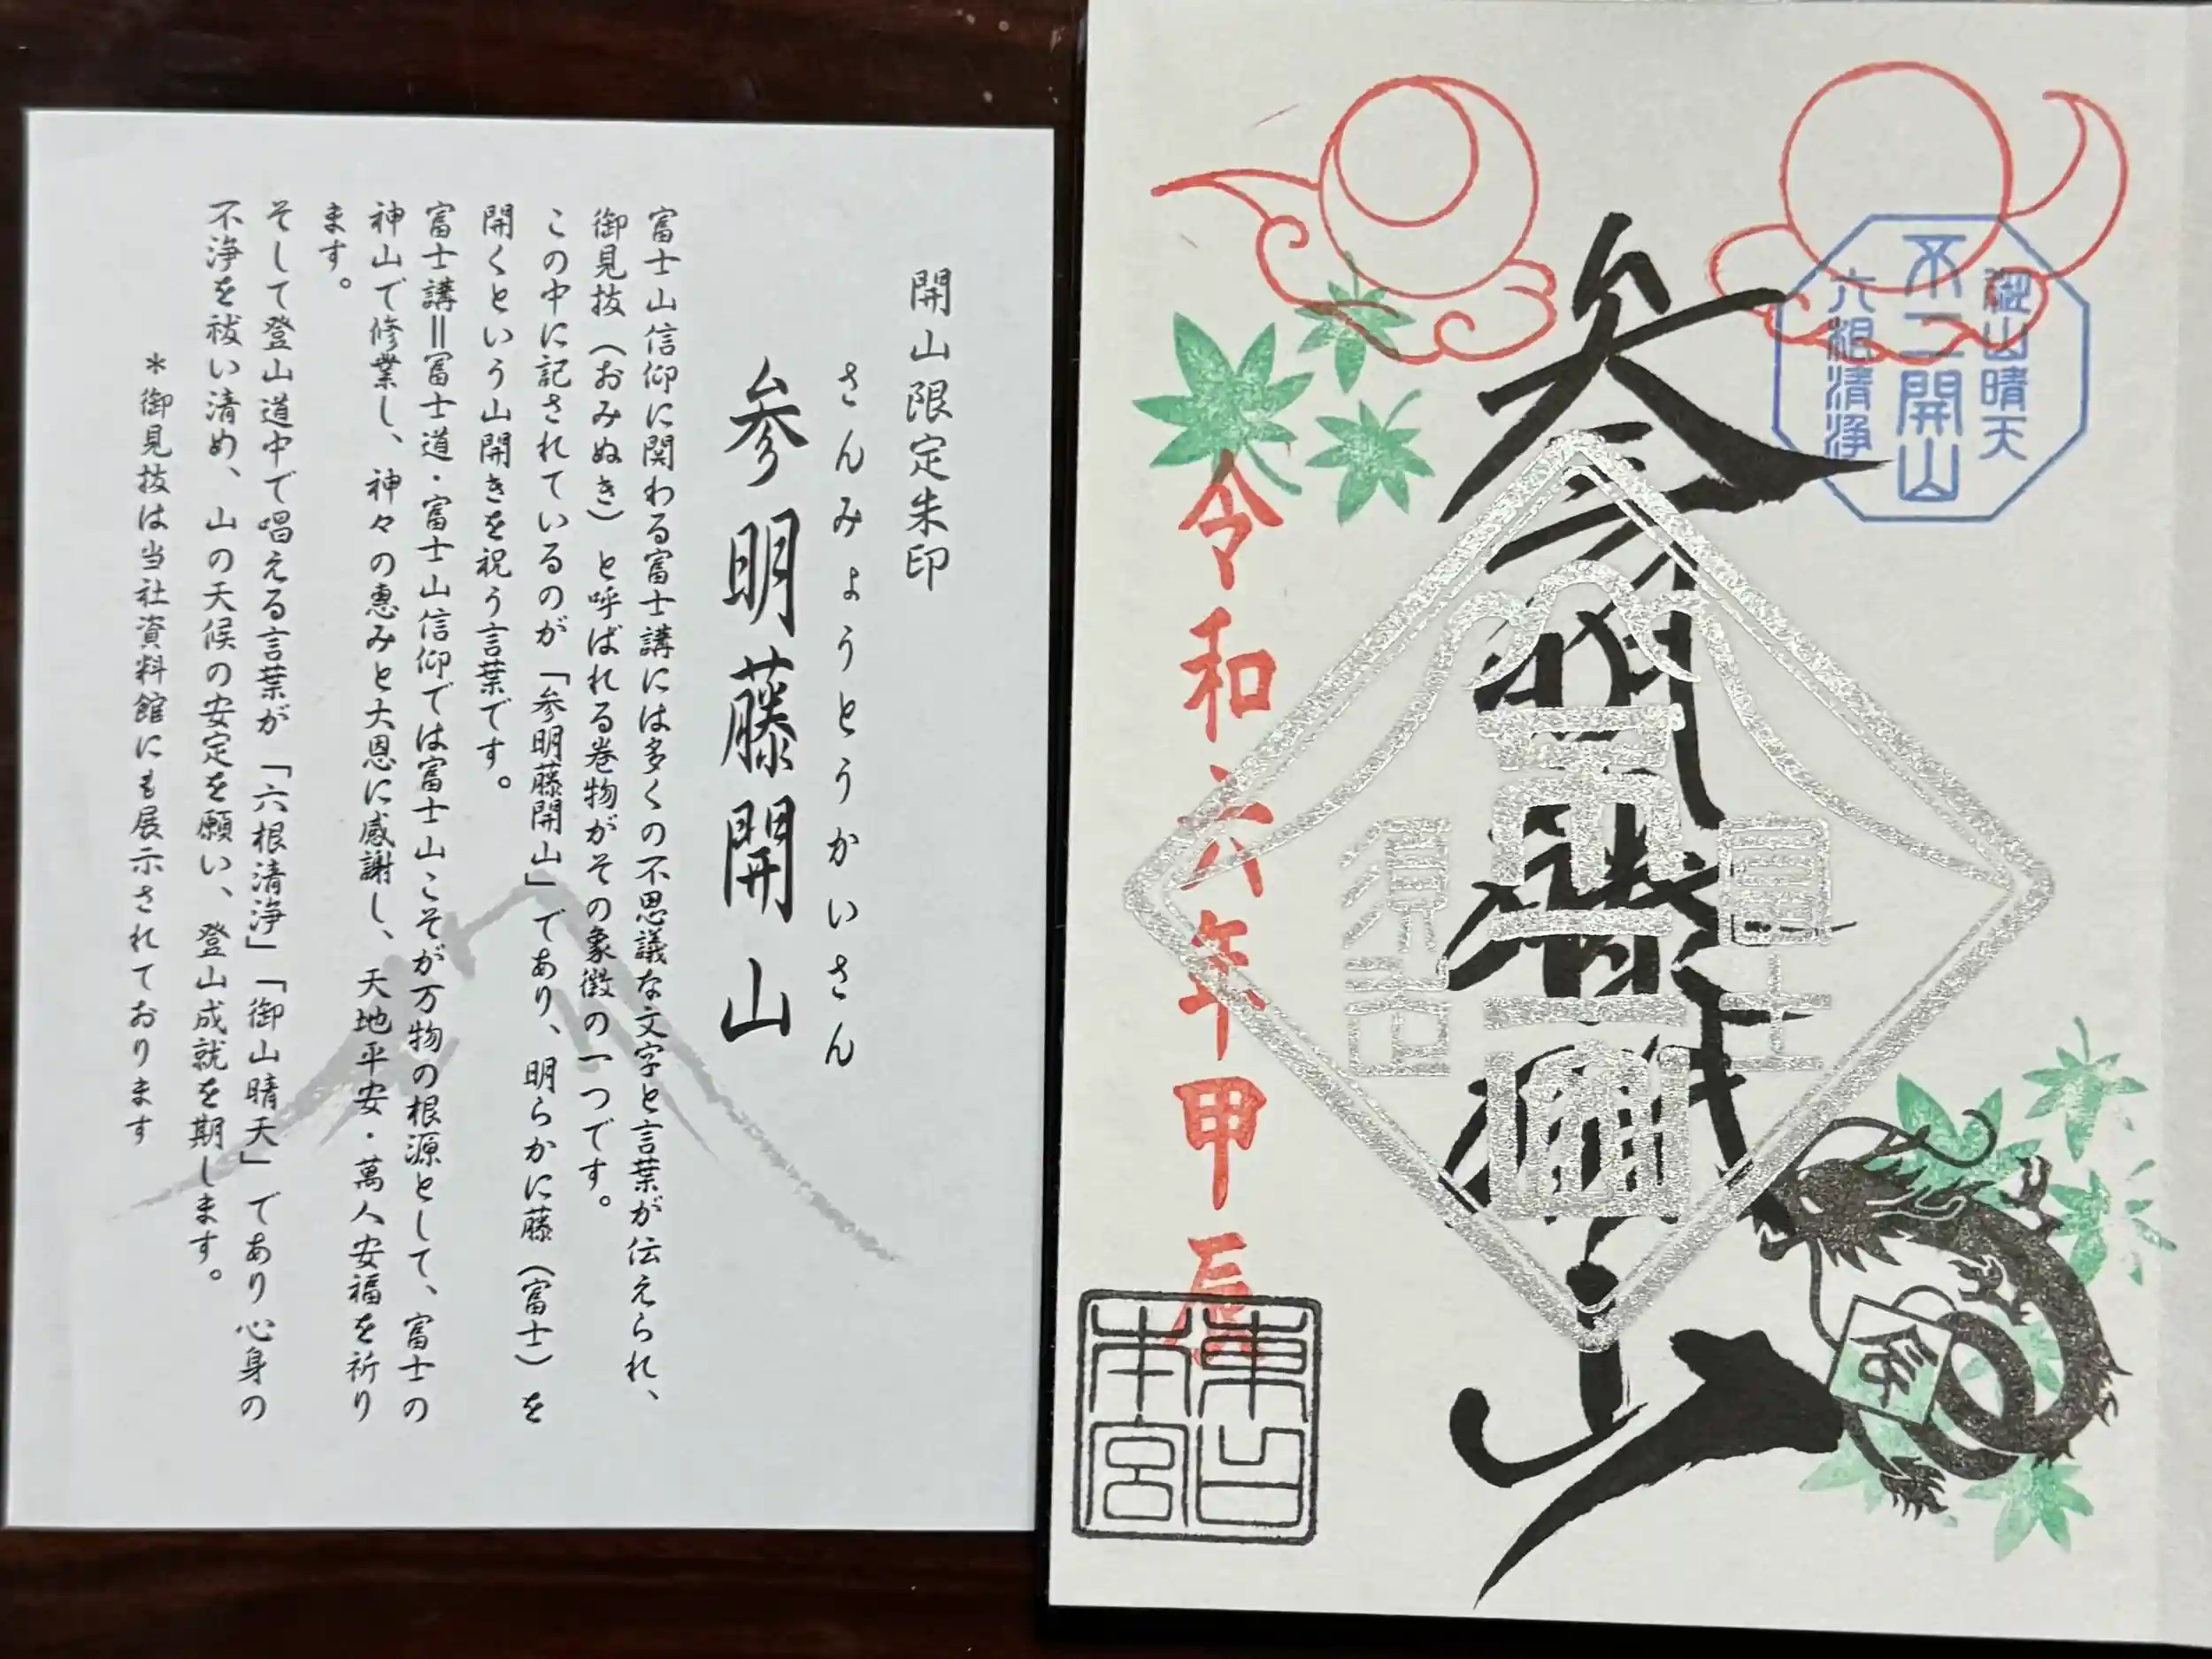 開山限定朱印
さんみょうとうかいさん
参明藤開山
富士山信仰に関わる富士講には多くの不思議な文字と言葉が伝えられ、
御見抜（おみぬき）と呼ばれる巻物がその象徴の一つです。
この中に記されているのが「参明藤開山」であり、明らかに藤（富士）を
開くという山開きを祝う言葉です。
富士講＝冨士道・富士山信仰では富士山こそが万物の根源として、富士の
神山で修業し、神々の恵みと大恩に感謝し、天地平安・萬人安福を祈り
ます。
そして登山道中で唱える言葉が「六根清浄」「御山晴天」であり心身の
不浄を祓い清め、山の天候の安定を願い、登山成就を期します。
＊御見抜は当社資料館にも展示されております
御山晴天
不二開山
六根清浄
参明藤開山
富士
須走
令和六年甲辰
東口
本宮